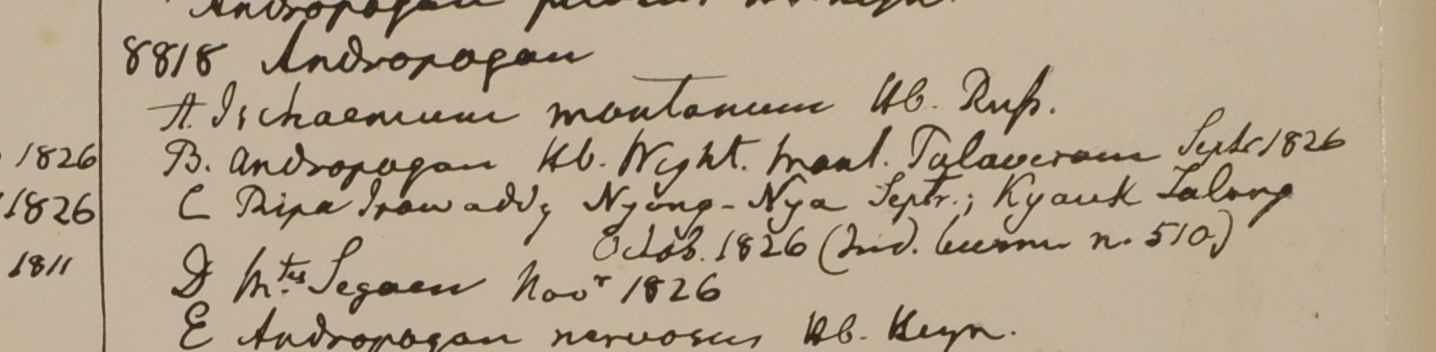 Andropogon Hb. Heyn.
8818 Andropogon
A. Ischaemum montanum Hb. Russ.
1826 B. Andropogon Hb. Wight. Mont. Talaveram Septr 1826
1826 C Ripa Irawaddy Nyong-Nya Septr.; Kyauk Talong
Octob. 1826 (Ind. burm n. 510)
1811 D Mtes Segaen Novr 1826
E Andropogon nervosus Hb. Heyn.